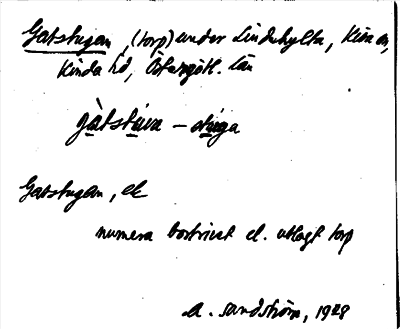 Gatstugan, (torp) under Lindehylta, Kisa sn,
Kinda hd, Östergötl. län
gàtstu̇va – stu̇ga
Gatstugan, ek
numera bortrivet el. utlagt torp
A. Sandström, 1928